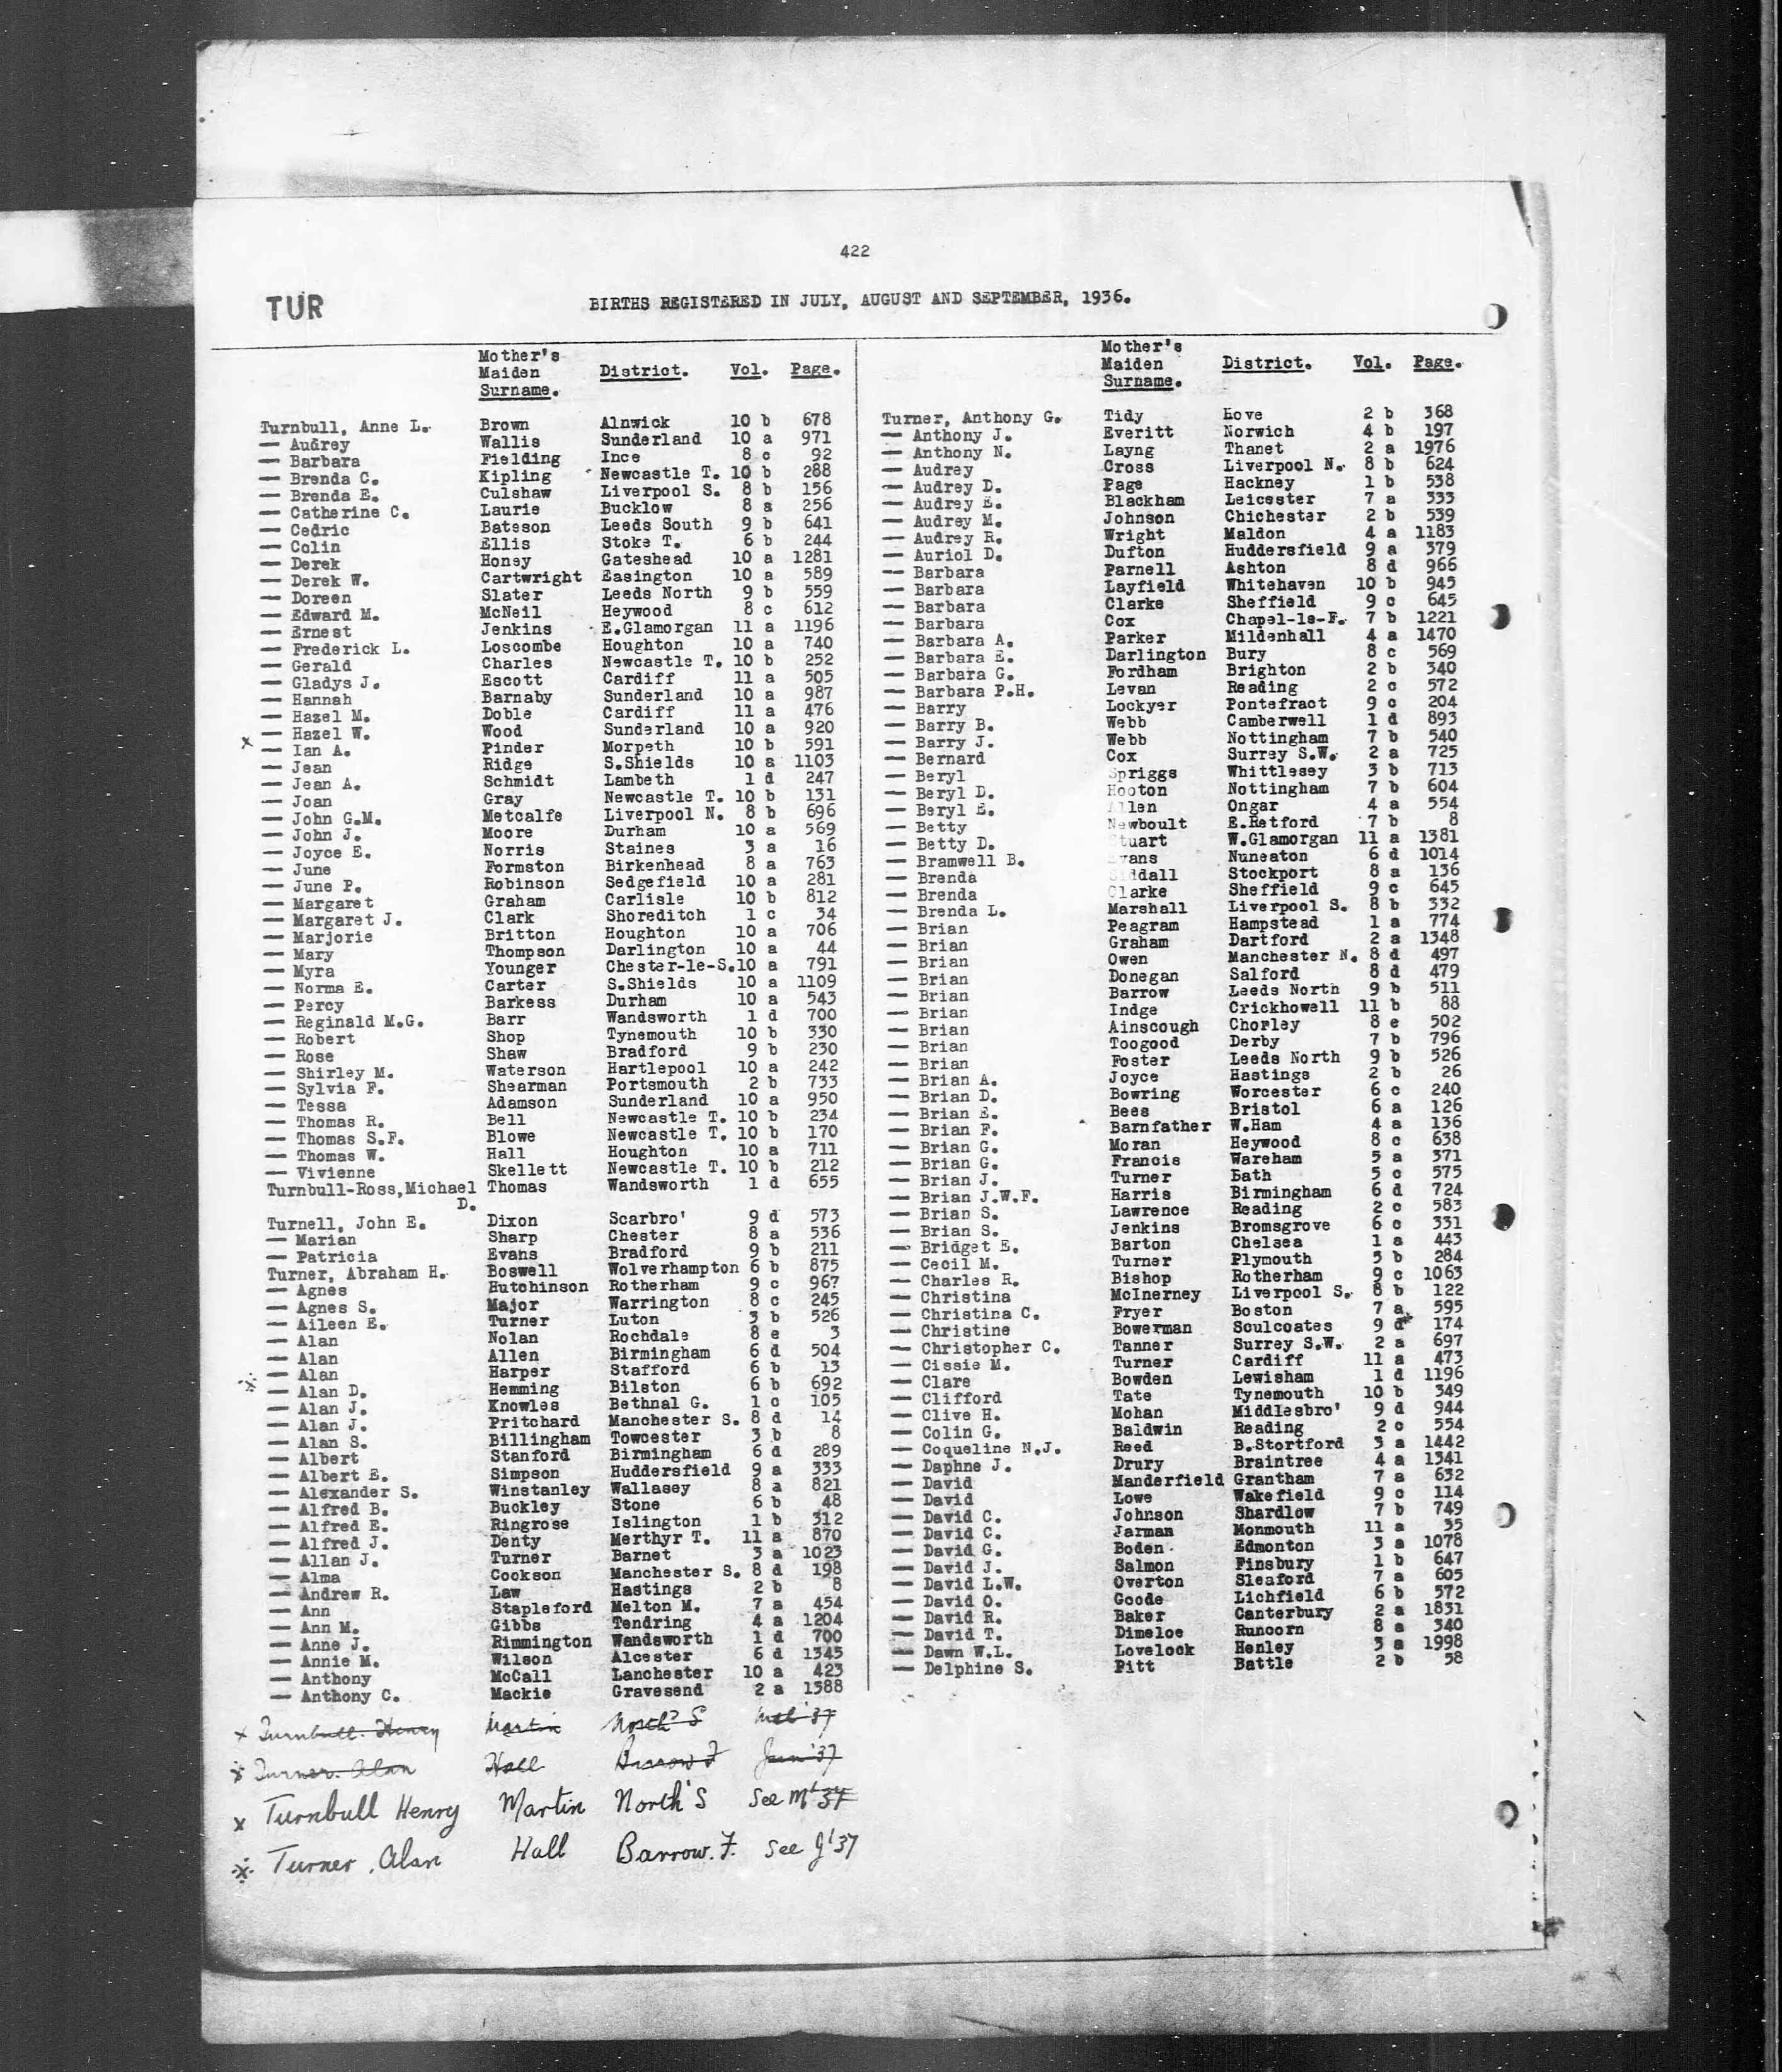 422
TUR
BIRTHS REGISTERED IN JULY, AUGUST AND SEPTEMBER, 1936.
Mother's Maiden Surname. District. Vol. Page.
Turnbull, Anne L. Brown Alnwick 10 b 678
— Audrey Wallis Sunderland 10 a 971
— Barbara Fielding Ince 8 c 92
— Brenda C. Kipling Newcastle T. 10 b 288
— Brenda E. Culshaw Liverpool S. 8 b 156
— Catherine C. Laurie Bucklow 8 a 256
— Cedric Bateson Leeds South 9 b 641
— Colin Ellis Stoke T. 6 b 244
— Derek Honey Gateshead 10 a 1281
— Derek W. Cartwright Easington 10 a 589
— Doreen Slater Leeds North 9 b 559
— Edward M. McNeil Heywood 8 c 612
— Ernest Jenkins E.Glamorgan 11 a 1196
— Frederick L. Loscombe Houghton 10 a 740
— Gerald Charles Newcastle T. 10 b 252
— Gladys J. Escott Cardiff 11 a 505
— Hannah Barnaby Sunderland 10 a 987
— Hazel M. Doble Cardiff 11 a 476
— Hazel W. Wood Sunderland 10 a 920
x — Ian A. Pinder Morpeth 10 b 591
— Jean Ridge S.Shields 10 a 1103
— Jean A. Schmidt Lambeth 1 d 247
— Joan Gray Newcastle T. 10 b 131
— John G.M. Metcalfe Liverpool N. 8 b 696
— John J. Moore Durham 10 a 569
— Joyce E. Norris Staines 3 a 16
— June Formston Birkenhead 8 a 763
— June P. Robinson Sedgefield 10 a 281
— Margaret Graham Carlisle 10 b 812
— Margaret J. Clark Shoreditch 1 c 34
— Marjorie Britton Houghton 10 a 706
— Mary Thompson Darlington 10 a 44
— Myra Younger Chester-le-S.10 a 791
— Norma E. Carter S.Shields 10 a 1109
— Percy Barkess Durham 10 a 543
— Reginald M.G. Barr Wandsworth 1 d 700
— Robert Shop Tynemouth 10 b 330
— Rose Shaw Bradford 9 b 230
— Shirley M. Waterson Hartlepool 10 a 242
— Sylvia F. Shearman Portsmouth 2 b 733
— Tessa Adamson Sunderland 10 a 950
— Thomas R. Bell Newcastle T. 10 b 234
— Thomas S.F. Blowe Newcastle T. 10 b 170
— Thomas W. Hall Houghton 10 a 711
— Vivienne Skellett Newcastle T. 10 b 212
Turnbull-Ross,Michael Thomas Wandsworth 1 d 655
D.
Turnell, John E. Dixon Scarbro' 9 d 573
— Marian Sharp Chester 8 a 536
— Patricia Evans Bradford 9 b 211
Turner, Abraham H. Boswell Wolverhampton 6 b 875
— Agnes Hutchinson Rotherham 9 c 967
— Agnes S. Major Warrington 8 c 245
— Aileen E. Turner Luton 3 b 526
— Alan Nolan Rochdale 8 e 3
— Alan Allen Birmingham 6 d 504
— Alan Harper Stafford 6 b 13
— Alan D. Hemming Bilston 6 b 692
— Alan J. Knowles Bethnal G. 1 c 105
— Alan J. Pritchard Manchester S. 8 d 14
— Alan S. Billingham Towcester 3 b 8
— Albert Stanford Birmingham 6 d 289
— Albert E. Simpson Huddersfield 9 a 333
— Alexander S. Winstanley Wallasey 8 a 821
— Alfred B. Buckley Stone 6 b 48
— Alfred E. Ringrose Islington 1 b 312
— Alfred J. Denty Merthyr T. 11 a 870
— Allan J. Turner Barnet 3 a 1023
— Alma Cookson Manchester S. 8 d 198
— Andrew R. Law Hastings 2 b 8
— Ann Stapleford Melton M. 7 a 454
— Ann M. Gibbs Tendring 4 a 1204
— Anne J. Rimmington Wandsworth 1 d 700
— Annie M. Wilson Alcester 6 d 1345
— Anthony McCall Lanchester 10 a 423
— Anthony C. Mackie Gravesend 2 a 1388
x Turnbull. Henry Martin North S '37
Turner. Alan Hall Barrow F Jun '37
x Turnbull Henry Martin North S See M' 37
Turner, Alan Hall Barrow. F. See J' 37
Mother's Maiden Surname. District. Vol. Page.
Turner, Anthony G. Tidy Hove 2 b 368
— Anthony J. Everitt Norwich 4 b 197
— Anthony N. Layng Thanet 2 a 1976
— Audrey Cross Liverpool N. 8 b 624
— Audrey D. Page Hackney 1 b 538
— Audrey E. Blackham Leicester 7 a 333
— Audrey M. Johnson Chichester 2 b 539
— Audrey R. Wright Maldon 4 a 1183
— Auriol D. Dufton Huddersfield 9 a 379
— Barbara Parnell Ashton 8 d 966
— Barbara Layfield Whitehaven 10 b 945
— Barbara Clarke Sheffield 9 c 645
— Barbara Cox Chapel-le-F. 7 b 1221
— Barbara A. Parker Mildenhall 4 a 1470
— Barbara E. Darlington Bury 8 c 569
— Barbara G. Fordham Brighton 2 b 340
— Barbara P.H. Levan Reading 2 c 572
— Barry Lockyer Pontefract 9 c 204
— Barry B. Webb Camberwell 1 d 893
— Barry J. Webb Nottingham 7 b 540
— Bernard Cox Surrey S.W. 2 a 725
— Beryl Spriggs Whittlesey 3 b 713
— Beryl D. Hooton Nottingham 7 b 604
— Beryl E. Allen Ongar 4 a 554
— Betty Newboult E.Retford 7 b 8
— Betty D. Stuart W.Glamorgan 11 a 1381
— Bramwell B. Evans Nuneaton 6 d 1014
— Brenda Siddall Stockport 8 a 136
— Brenda Clarke Sheffield 9 c 645
— Brenda L. Marshall Liverpool S. 8 b 332
— Brian Peagram Hampstead 1 a 774
— Brian Graham Dartford 2 a 1348
— Brian Owen Manchester N. 8 d 497
— Brian Donegan Salford 8 d 479
— Brian Barrow Leeds North 9 b 511
— Brian Indge Crickhowell 11 b 88
— Brian Ainscough Chorley 8 e 502
— Brian Toogood Derby 7 b 796
— Brian Foster Leeds North 9 b 526
— Brian A. Joyce Hastings 2 b 26
— Brian D. Bowring Worcester 6 c 240
— Brian E. Bees Bristol 6 a 126
— Brian F. Barnfather W.Ham 4 a 136
— Brian G. Moran Heywood 8 c 638
— Brian G. Francis Wareham 5 a 371
— Brian J. Turner Bath 5 c 575
— Brian J.W.F. Harris Birmingham 6 d 724
— Brian S. Lawrence Reading 2 c 583
— Brian S. Jenkins Bromsgrove 6 c 331
— Bridget E. Barton Chelsea 1 a 443
— Cecil M. Turner Plymouth 5 b 284
— Charles R. Bishop Rotherham 9 c 1063
— Christina McInerney Liverpool S. 8 b 122
— Christina C. Fryer Boston 7 a 595
— Christine Bowerman Sculcoates 9 d 174
— Christopher C. Tanner Surrey S.W. 2 a 697
— Cissie M. Turner Cardiff 11 a 473
— Clare Bowden Lewisham 1 d 1196
— Clifford Tate Tynemouth 10 b 349
— Clive H. Mohan Middlesbro' 9 d 944
— Colin G. Baldwin Reading 2 c 554
— Coqueline N.J. Reed B.Stortford 3 a 1442
— Daphne J. Drury Braintree 4 a 1341
— David Manderfield Grantham 7 a 632
— David Lowe Wakefield 9 c 114
— David C. Johnson Shardlow 7 b 749
— David C. Jarman Monmouth 11 a 35
— David G. Boden Edmonton 3 a 1078
— David J. Salmon Finsbury 1 b 647
— David L.W. Overton Sleaford 7 a 605
— David O. Goode Lichfield 6 b 572
— David R. Baker Canterbury 2 a 1831
— David T. Dimeloe Runcorn 8 a 340
— Dawn W.L. Lovelock Henley 3 a 1998
— Delphine S. Pitt Battle 2 b 58